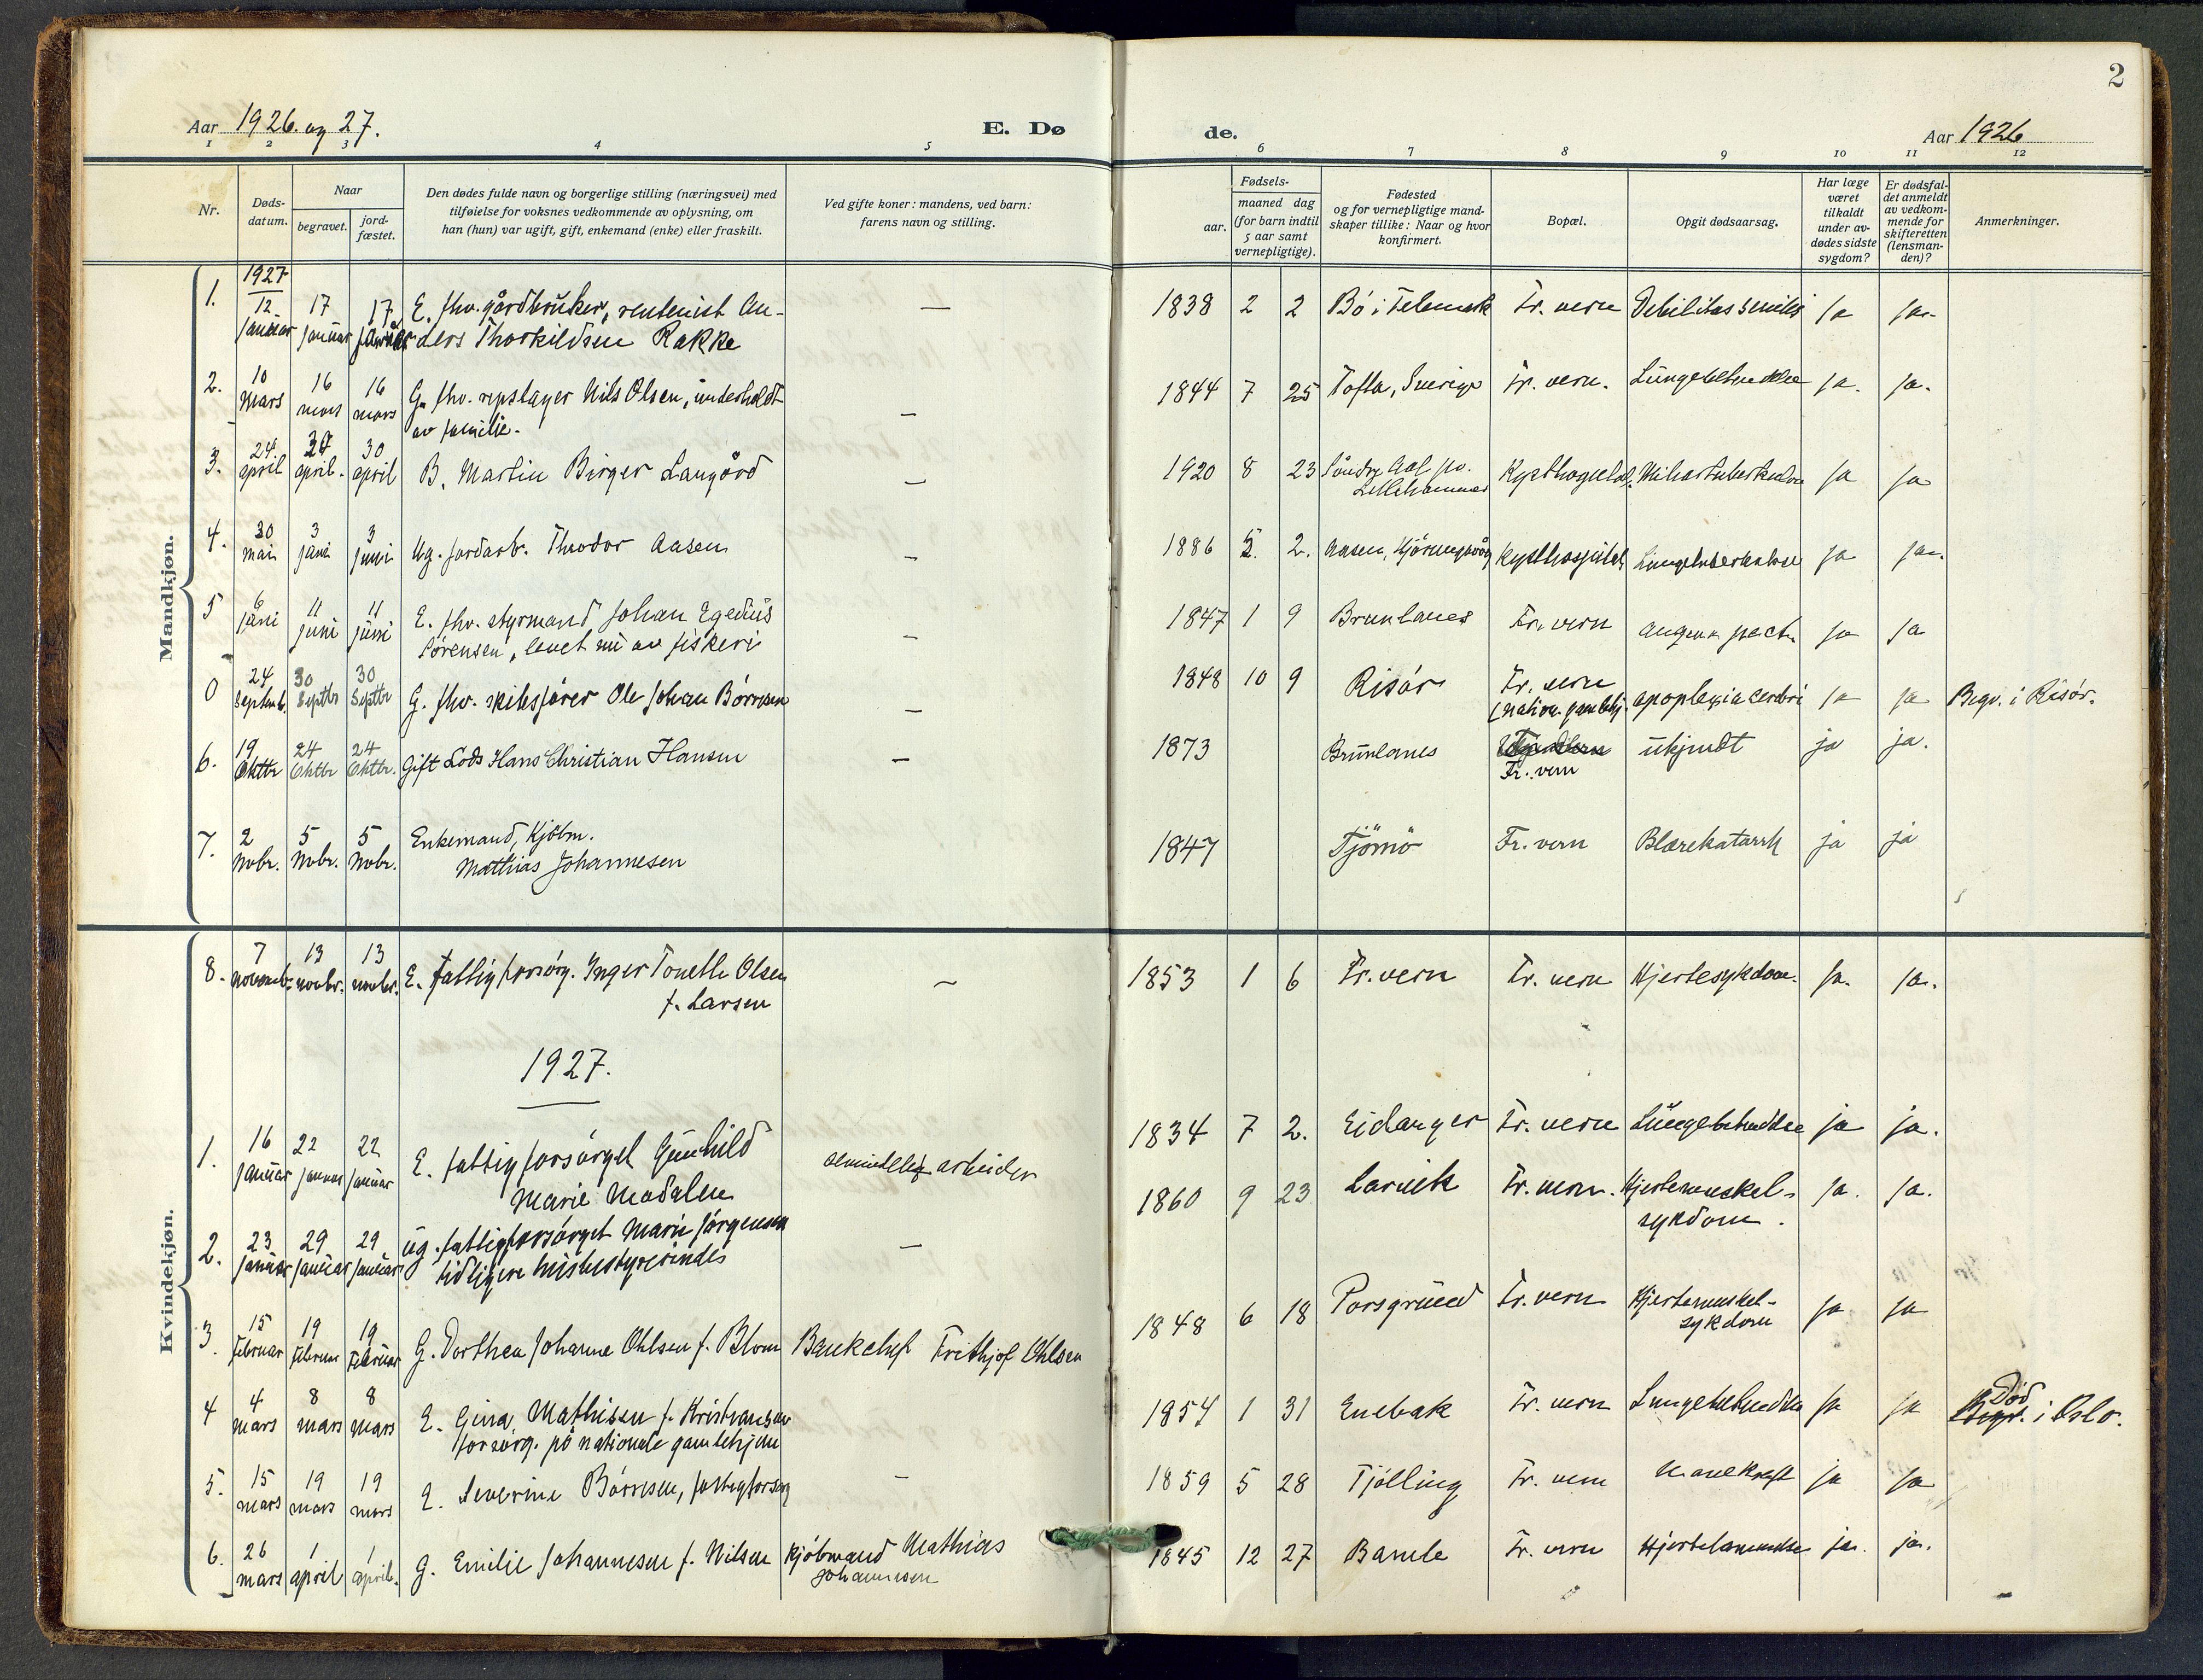 2
Aar 1926. og 27.
E. Dø
de.
Aar 1926
1 2 3 4 5 6 7 8 9 10 11 12
Nr.
Døds-
datum.
Naar
begravet.
jord-
fæstet.
Den dødes fulde navn og borgerlige stilling (næringsvei) med
tilføielse for voksnes vedkommende av oplysning, om
han (hun) var ugift, gift, enkemand (enke) eller fraskilt.
Ved gifte koner: mandens, ved barn:
farens navn og stilling.
Fødsels-
aar.
maaned dag
(for barn indtil
5 aar samt
vernepligtige).
Fødested
og for vernepligtige mand-
skaper tillike: Naar og hvor
konfirmert.
Bopæl.
Opgit dødsaarsag.
Har læge
været
tilkaldt
under av-
dødes sidste
sygdom?
Er dødsfal-
det anmeldt
av vedkom-
mende for
skifteretten
(lensman-
den)?
Anmerkninger.
Mandkjøn.
1927
1. 12 januar 17 januar 17 januar E. fhv. gårdbruker, rentenist An-
ders Thorkildsen Rakke — 1838 2 2 Bø i Telemark Fr. vern Debilitas senilis ja ja
2. 10 Mars 16 mars 16 mars G. fhv. repslager Nils Olsen, underholdt
av familie. — 1844 7 25 Tofta, Sverige Fr. vern. Lungebetændelse ja. ja.
3. 24. april 30 april. 30 april B. Martin Birger Langård — 1920 8 23 Søndre Aal pr.
Lillehammer Kysthospital. Miliartuberkulose ja ja
4. 30 mai 3 juni 3 juni Ug. jordarb. Theodor Aasen — 1886 5. 2. Aasen, Hjørungavåg Kysthospitalet Lungetuberkulose ja ja.
5 6 juni 11 juni 11 juni E. fhv. styrmand Johan Egedius
Sørensen, levet nu av fiskeri — 1847 1 9 Brunlanes Fr. vern angina pect. ja ja
0 24 Septemb. 30 Septbr 30 Septbr G. fhv. skibsfører Ole Johan Børresen — 1848 10 9 Risør Fr. vern
(nation. gamlehj. apoplexia cerebri ja ja Begr. i Risør.
6. 19 Oktbr 24 Oktbr 24 Oktbr. Gift Lods Hans Christian Hansen — 1873 Brunlanes Fr. vern ukjendt ja ja.
7. 2 Novbr. 5 Novbr. 5 Novbr. Enkemand, Kjøbm.
Matthias Johannesen 1847 Tjømø Fr. vern Blærekatarrh ja ja
Kvindekjøn.
8. 7 novemb. 13 novbr. 13 novbr. E. fattigforsørg. Inger Tonette Olsen
f. Larsen — 1853 1 6 Fr. vern Fr. vern Hjertesykdom. ja. ja.
1927.
1. 16 januar 22 januar 22 januar E. fattigforsørget Gunhild
Marie Madalen almindelig arbeider 1834 7 2. Eidanger Fr. vern Lungebetændelse ja ja.
2. 23 januar 29 januar 29 januar ug. fattigforsørget Marie Jørgensen
tidligere husbestyrerinde — 1860 9 23 Larvik Fr. vern. Hjertemuskel-
sykdom. ja. ja.
3. 15 Februar 19 Februar 19 Februar G. Dorthea Johanne Ohlsen f. Blom Bankchef Frithjof Ohlsen 1848 6 18 Porsgrund Fr. vern Hjertemuskel-
sykdom ja ja
4 4 mars 8 mars 8 mars E. Gina Mathisen f. Kristiansen
forsørg. på nationale gamlehjem 1854 1 31 Enebak Fr. vern Lungebetændelse ja ja Død
Begr. i Oslo.
5. 15 mars 19 mars 19 mars E. Severine Børresen, fattigforsørg — 1859 5 28 Tjølling Fr. vern Mavekræft ja ja
6. 26 mars 1 april 1 april. G. Emilie Johannesen f. Nilsen Kjøbmand Mathias
Johannesen 1845 12 27 Bamle Fr. vern Hjertelammelse ja. ja.